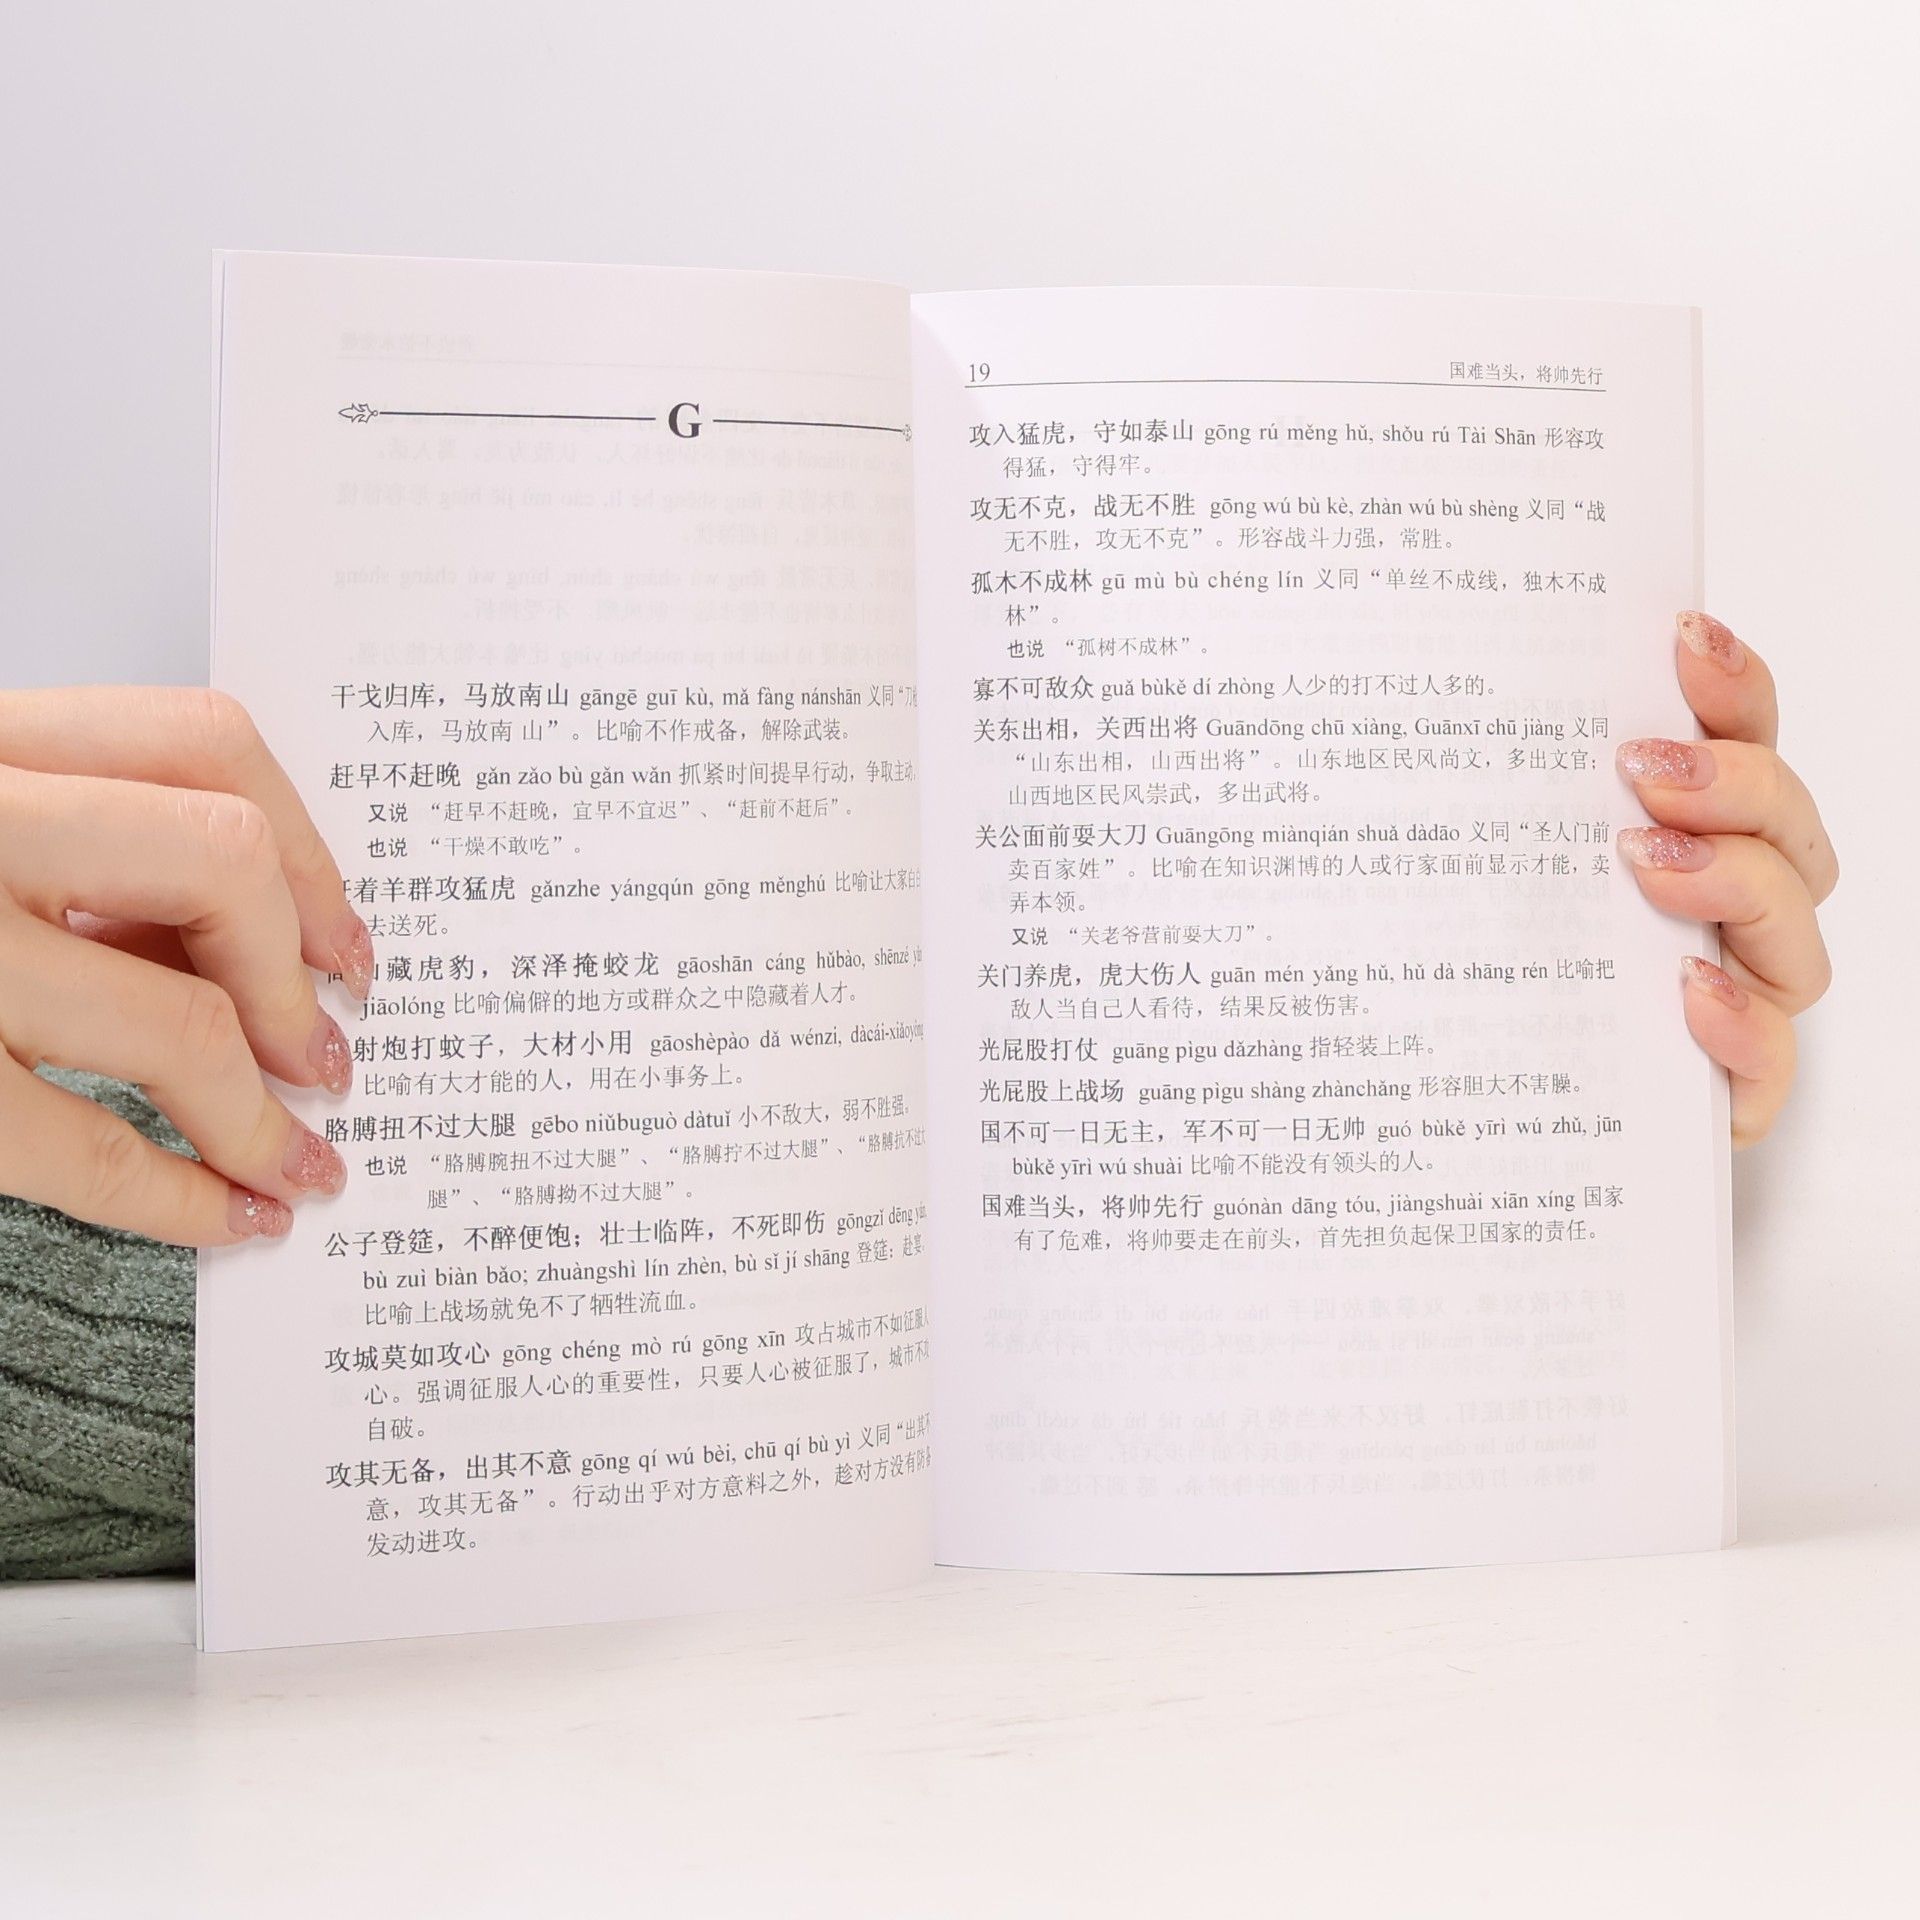 G
干戈归库，马放南山 gāngē guī kù, mǎ fàng nánshān 义同“刀
入库，马放南 山”。比喻不作戒备，解除武装。
赶早不赶晚 gǎn zǎo bù gǎn wǎn 抓紧时间提早行动，争取主动。
又说 “赶早不赶晚，宜早不宜迟”、“赶前不赶后”。
也说 “干燥不敢吃”。
着羊群攻猛虎 gǎnzhe yángqún gōng měnghú 比喻让大家白白
去送死。
藏虎豹，深泽掩蛟龙 gāoshān cáng hǔbào, shēnzé
jiāolóng 比喻偏僻的地方或群众之中隐藏着人才。
射炮打蚊子，大材小用 gāoshèpào dǎ wénzi, dàcái-xiǎoyòng
比喻有大才能的人，用在小事务上。
胳膊扭不过大腿 gēbo niǔbuguò dàtuǐ 小不敌大，弱不胜强。
也说 “胳膊腕扭不过大腿”、“胳膊拧不过大腿”、“胳膊抗不过大
腿”、“胳膊拗不过大腿”。
公子登筵，不醉便饱；壮士临阵，不死即伤 gōngzǐ dēng yán,
bù zuì biàn bǎo; zhuàngshì lín zhèn, bù sǐ jí shāng 登筵：赴宴。
比喻上战场就免不了牺牲流血。
攻城莫如攻心 gōng chéng mò rú gōng xīn 攻占城市不如征服人
心。强调征服人心的重要性，只要人心被征服了，城市不攻
自破。
攻其无备，出其不意 gōng qí wú bèi, chū qí bù yì 义同“出其不
意，攻其无备”。行动出乎对方意料之外，趁对方没有防备
发动进攻。
19 国难当头，将帅先行
攻入猛虎，守如泰山 gōng rú měng hǔ, shǒu rú Tài Shān 形容攻
得猛，守得牢。
攻无不克，战无不胜 gōng wú bù kè, zhàn wú bù shèng 义同“战
无不胜，攻无不克”。形容战斗力强，常胜。
孤木不成林 gū mù bù chéng lín 义同“单丝不成线，独木不成
林”。
也说 “孤树不成林”。
寡不可敌众 guǎ bùkě dí zhòng 人少的打不过人多的。
关东出相，关西出将 Guāndōng chū xiàng, Guānxī chū jiàng 义同
“山东出相，山西出将”。山东地区民风尚文，多出文官；
山西地区民风崇武，多出武将。
关公面前耍大刀 Guāngōng miànqián shuǎ dàdāo 义同“圣人门前
卖百家姓”。比喻在知识渊博的人或行家面前显示才能，卖
弄本领。
又说 “关老爷营前耍大刀”。
关门养虎，虎大伤人 guān mén yǎng hǔ, hǔ dà shāng rén 比喻把
敌人当自己人看待，结果反被伤害。
光屁股打仗 guāng pìgu dǎzhàng 指轻装上阵。
光屁股上战场 guāng pìgu shàng zhànchǎng 形容胆大不害臊。
国不可一日无主，军不可一日无帅 guó bùkě yīrì wú zhǔ, jūn
bùkě yīrì wú shuài 比喻不能没有领头的人。
国难当头，将帅先行 guónàn dāng tóu, jiàngshuài xiān xíng 国家
有了危难，将帅要走在前头，首先担负起保卫国家的责任。